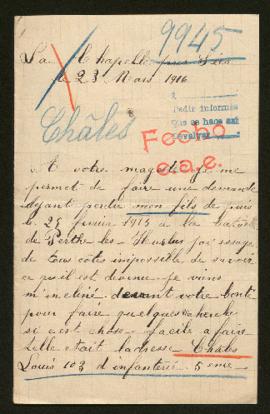 9945
La Chapelle près
le 23 Mars 1916
Châles
Pedir informes
que se hace así
devolver
Fecho
e.a.e.
A votre magesté je me
permet de faire une demande
ayant perdu mon fils depuis
le 25 février 1915 à la bataille
de Perthe les Hurlus j'ai essayé
de tous cotés impossible de savoir
ce qu'il est devenu je viens
m'incliné devant votre bonté
pour faire quelques recherche
si c'est chose facile a faire
telle était ladresse Chals
Louis 103 d'infanterie 5 eme